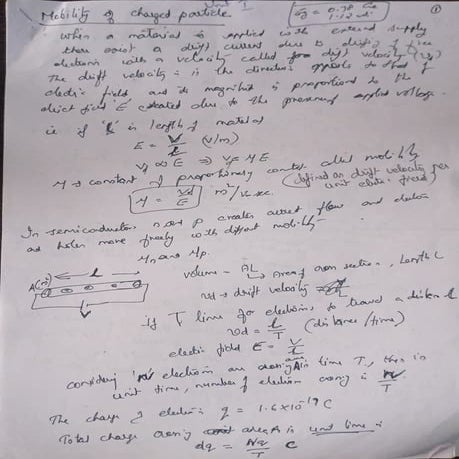 Unit I
Mobility of charged particle.
①
When a material is applied with external supply
there exist a drift current due to drifting of free
electrons with a velocity called drift velocity (vd)
The drift velocity is in the direction opposite to that of
electric field and its magnitude is proportional to the
electric field 'E' created due to the presence of applied voltage.
ie if 'L' is length of material
E = V/L (V/m)
Vd ∝ E ⇒ Vd = μE
μ → constant of proportionality called mobility
μ = Vd/E m²/V sec. (defined as drift velocity per unit electric field)
In semiconductors n and p creates current flow and electron
and holes move freely with different mobility
μn and μp.
A(m²) ← l →
V
volume - AL
↳ Area of cross section, length L
vd → drift velocity
If T time for electrons to travel a distance l
Vd = l/T (distance/time)
electric field E = V/l
considering 'N' electrons are crossing area A in time T, then in
unit time, number of electron crossing is N/T
The charge of electron q = 1.6×10⁻¹⁹ C
Total charge crossing area A in unit time is
dq = Nq/T C